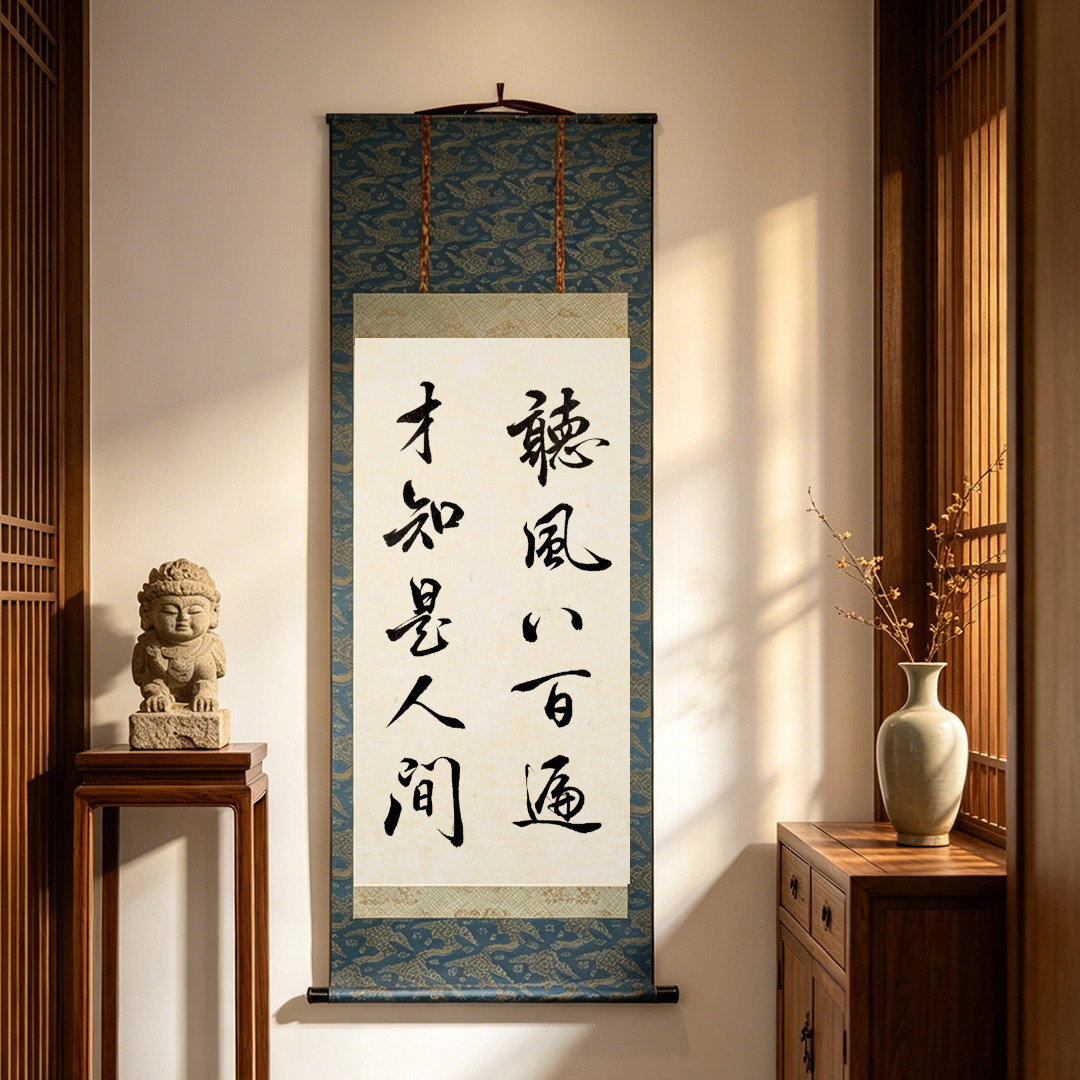 聽風八百遍
才知是人間